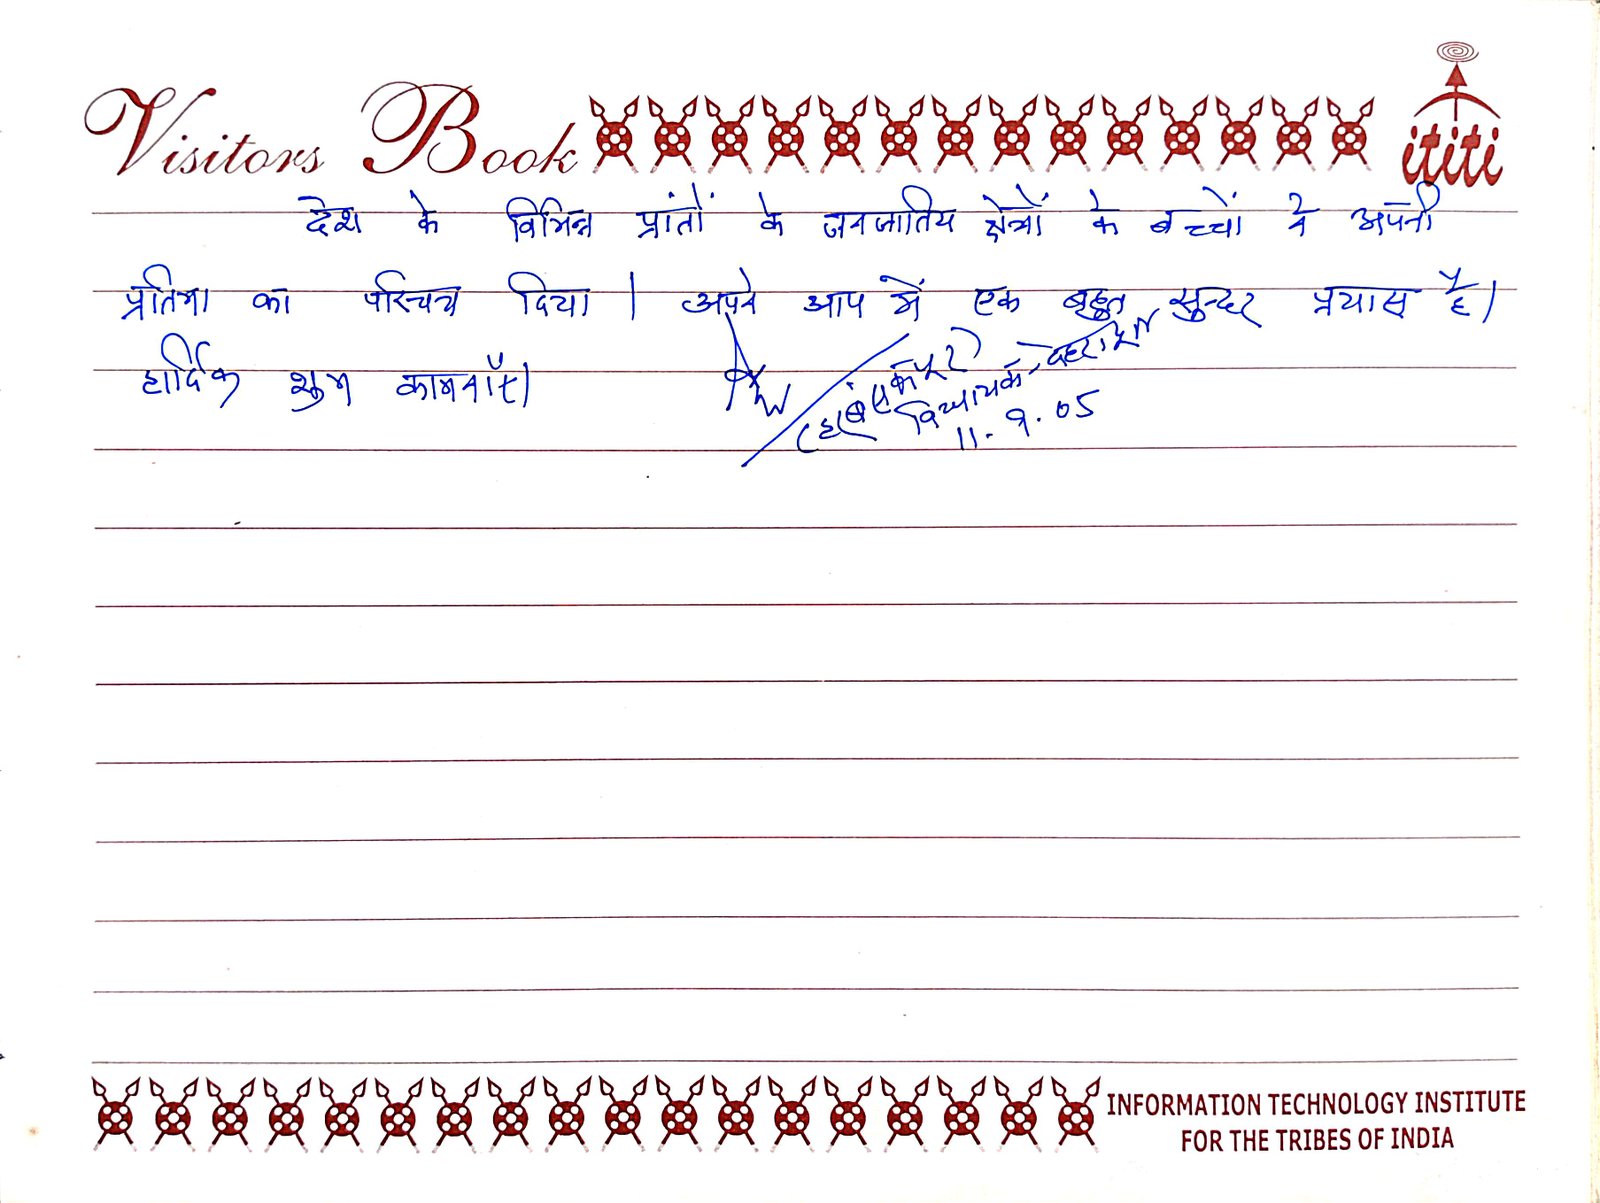 Visitors Book
ititi
देश के विभिन्न प्रांतों के जनजातिय क्षेत्रों के बच्चों ने अपनी
प्रतिभा का परिचय दिया | अपने आप में एक बहुत सुन्दर प्रयास है।
हार्दिक शुभ कामनाएँ।
(हरबंस कपूर)
विधायक, देहरादून
11.9.05
INFORMATION TECHNOLOGY INSTITUTE
FOR THE TRIBES OF INDIA